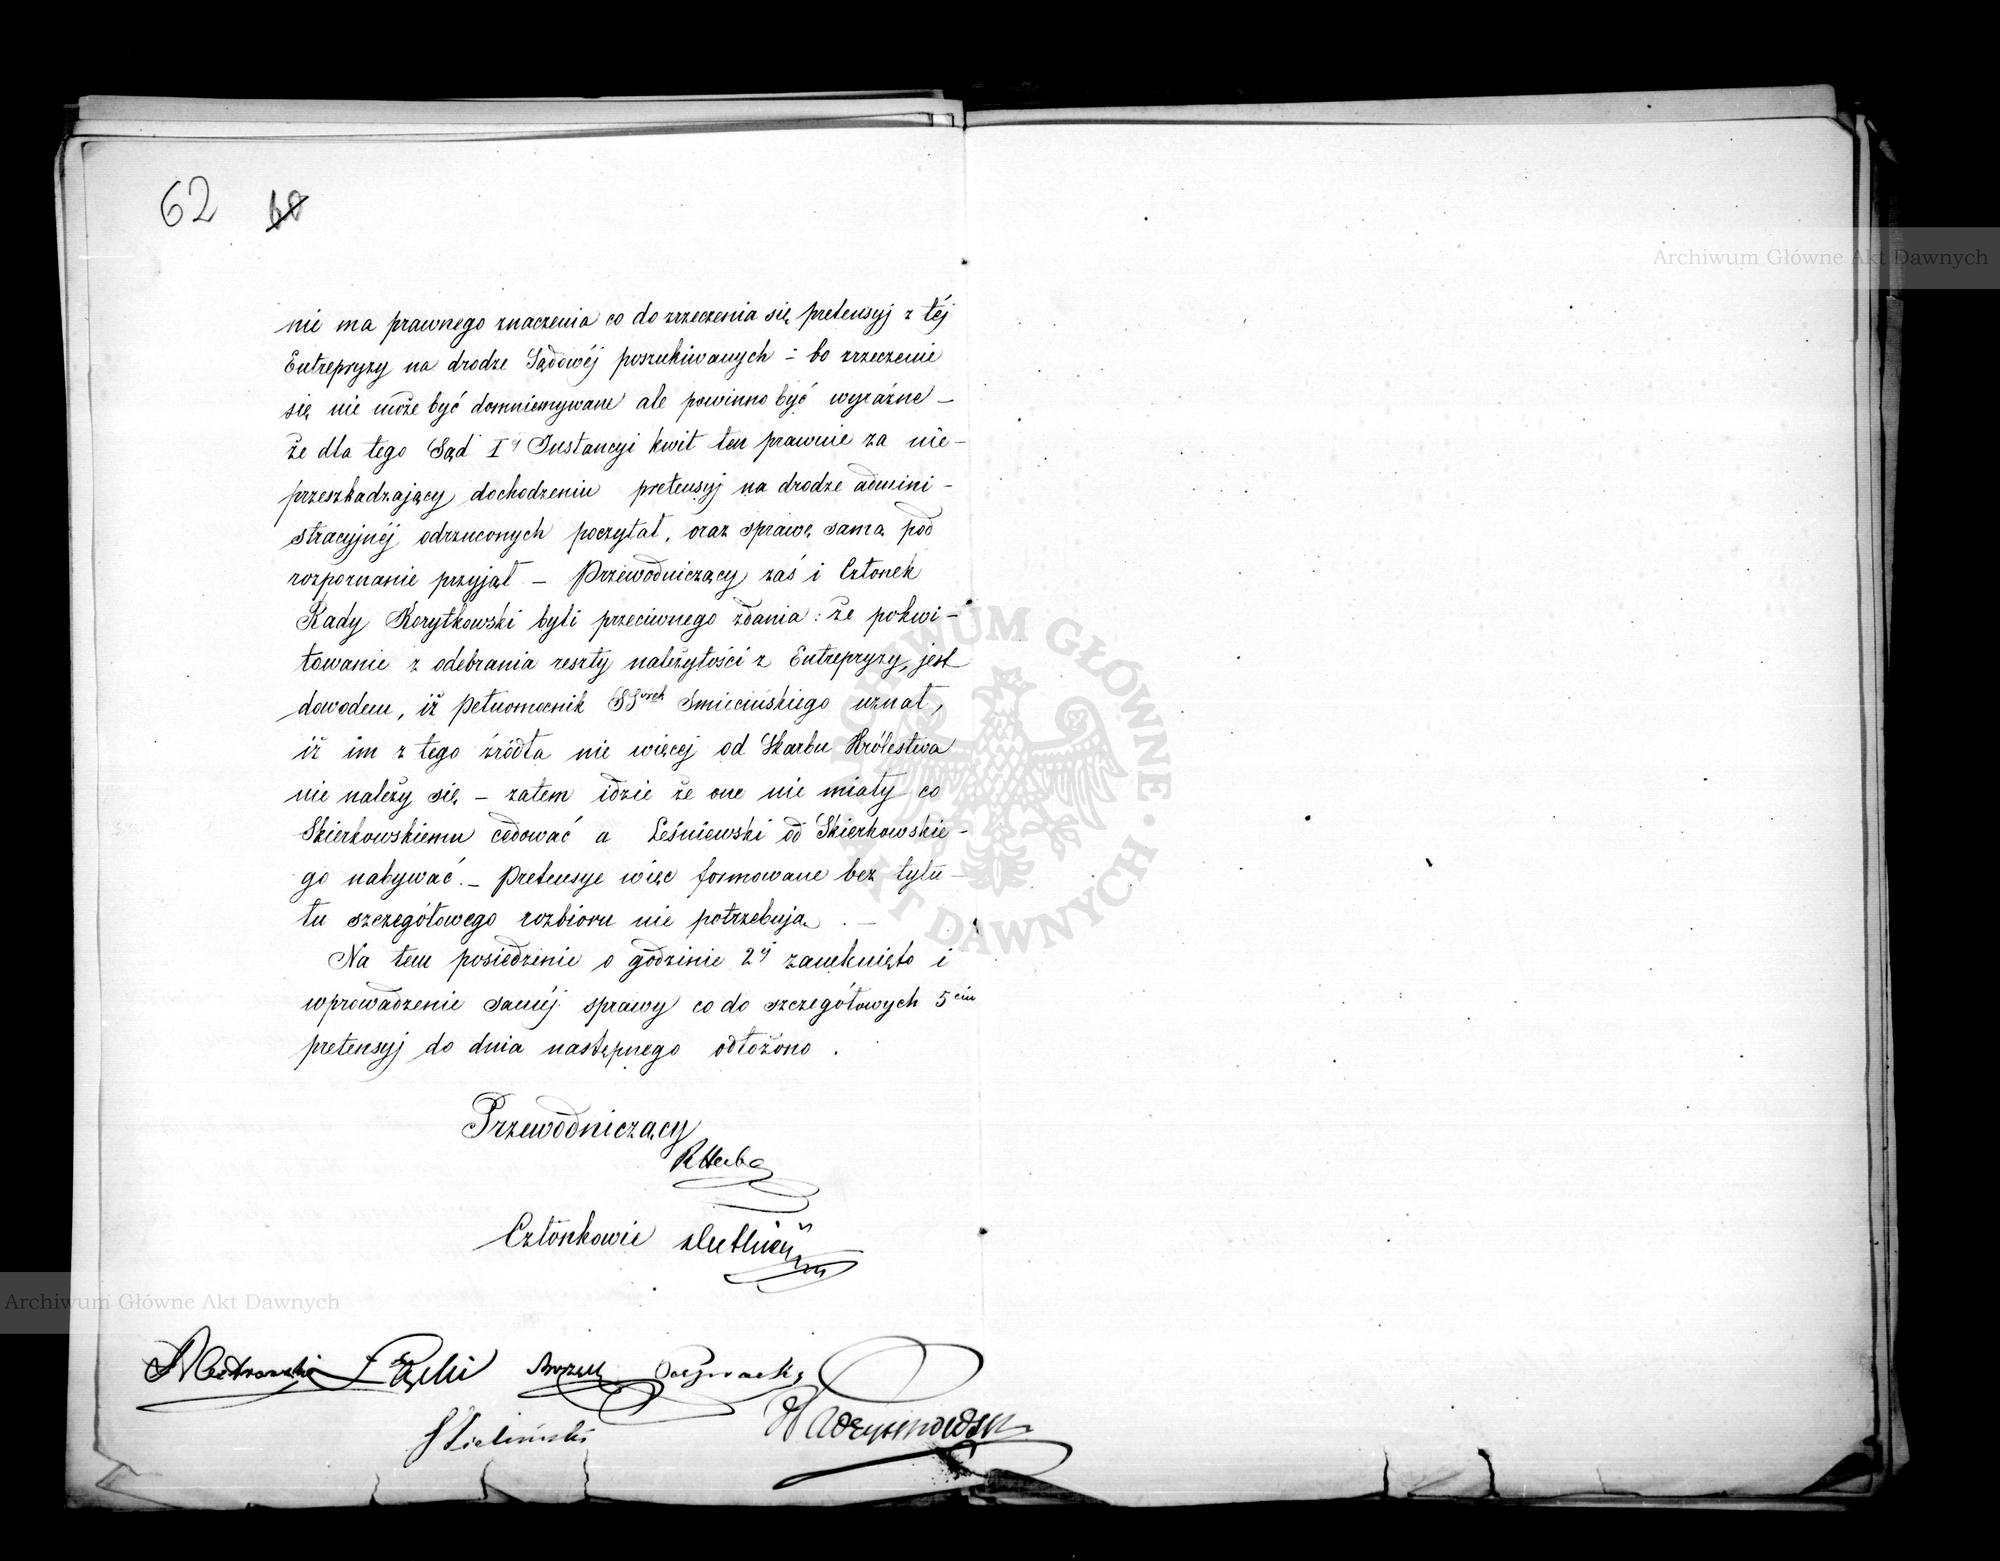 62 60
nie ma prawnego znaczenia co do zrzeczenia się pretensyj z téj
Entrepryzy na drodze Sądowéj poszukiwanych – bo zrzeczenie
się nie może być domniemywane ale powinno być wyraźne –
że dla tego Sąd Iéj Instancyi kwit ten prawnie za nie-
przeszkadzający dochodzeniu pretensyj na drodze admini-
stracyjnéj odrzuconych poczytał, oraz sprawę samą pod
rozpoznanie przyjął – Przewodniczący zaś i Członek
Rady Korytkowski byli przeciwnego zdania: że pokwi-
towanie z odebrania reszty należytości z Entrepryzy, jest
dowodem, iż Pełnomocnik SSrów Smiecińskiego uznał,
iż im z tego źródła nic więcej od Skarbu Królestwa
nie należy się – zatem idzie że one nie miały co
Skierkowskiemu cedować a Leśniewski od Skierkowskie-
go nabywać. – Pretensye więc formowane bez tytu-
łu szczegółowego rozbioru nie potrzebują. –
Na tem posiedzenie o godzinie 2éj zamknięto i
wprowadzenie saméj sprawy co do szczegółowych 5ciu
pretensyj do dnia następnego odłożono.
Przewodniczący
Członkowie
Archiwum Główne Akt Dawnych
Archiwum Główne Akt Dawnych
ARCHIWUM GŁÓWNE AKT DAWNYCH